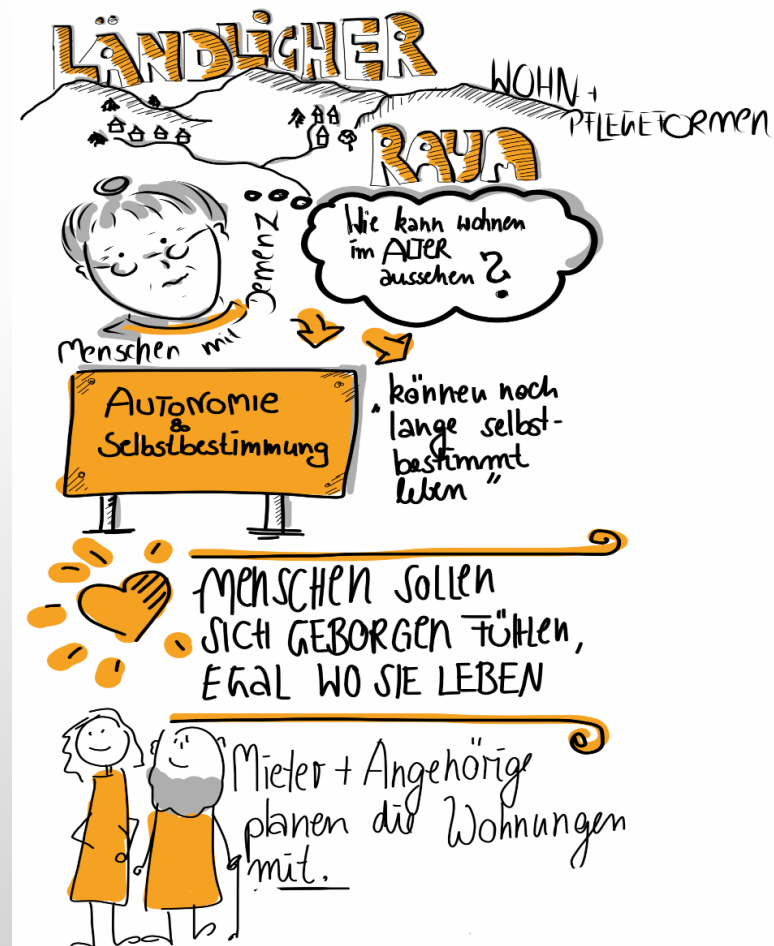 LÄNDLICHER
WOHN +
PFLEGEFORMEN
RAUM
Wie kann wohnen
im ALTER
aussehen ?
Menschen mit Demenz
AUTONOMIE
&
Selbstbestimmung
"können noch
lange selbst-
bestimmt
leben"
MENSCHEN SOLLEN
SICH GEBORGEN FÜHLEN,
EGAL WO SIE LEBEN
Mieter + Angehörige
planen die Wohnungen
mit.